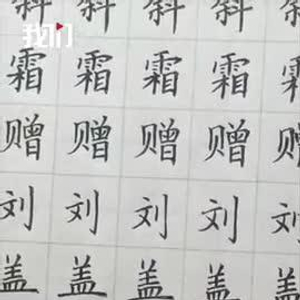 我们
斜 斜 斜 斜 斜
霜 霜 霜 霜 霜
赠 赠 赠 赠 赠
刘 刘 刘 刘 刘
盖 盖 盖 盖 盖